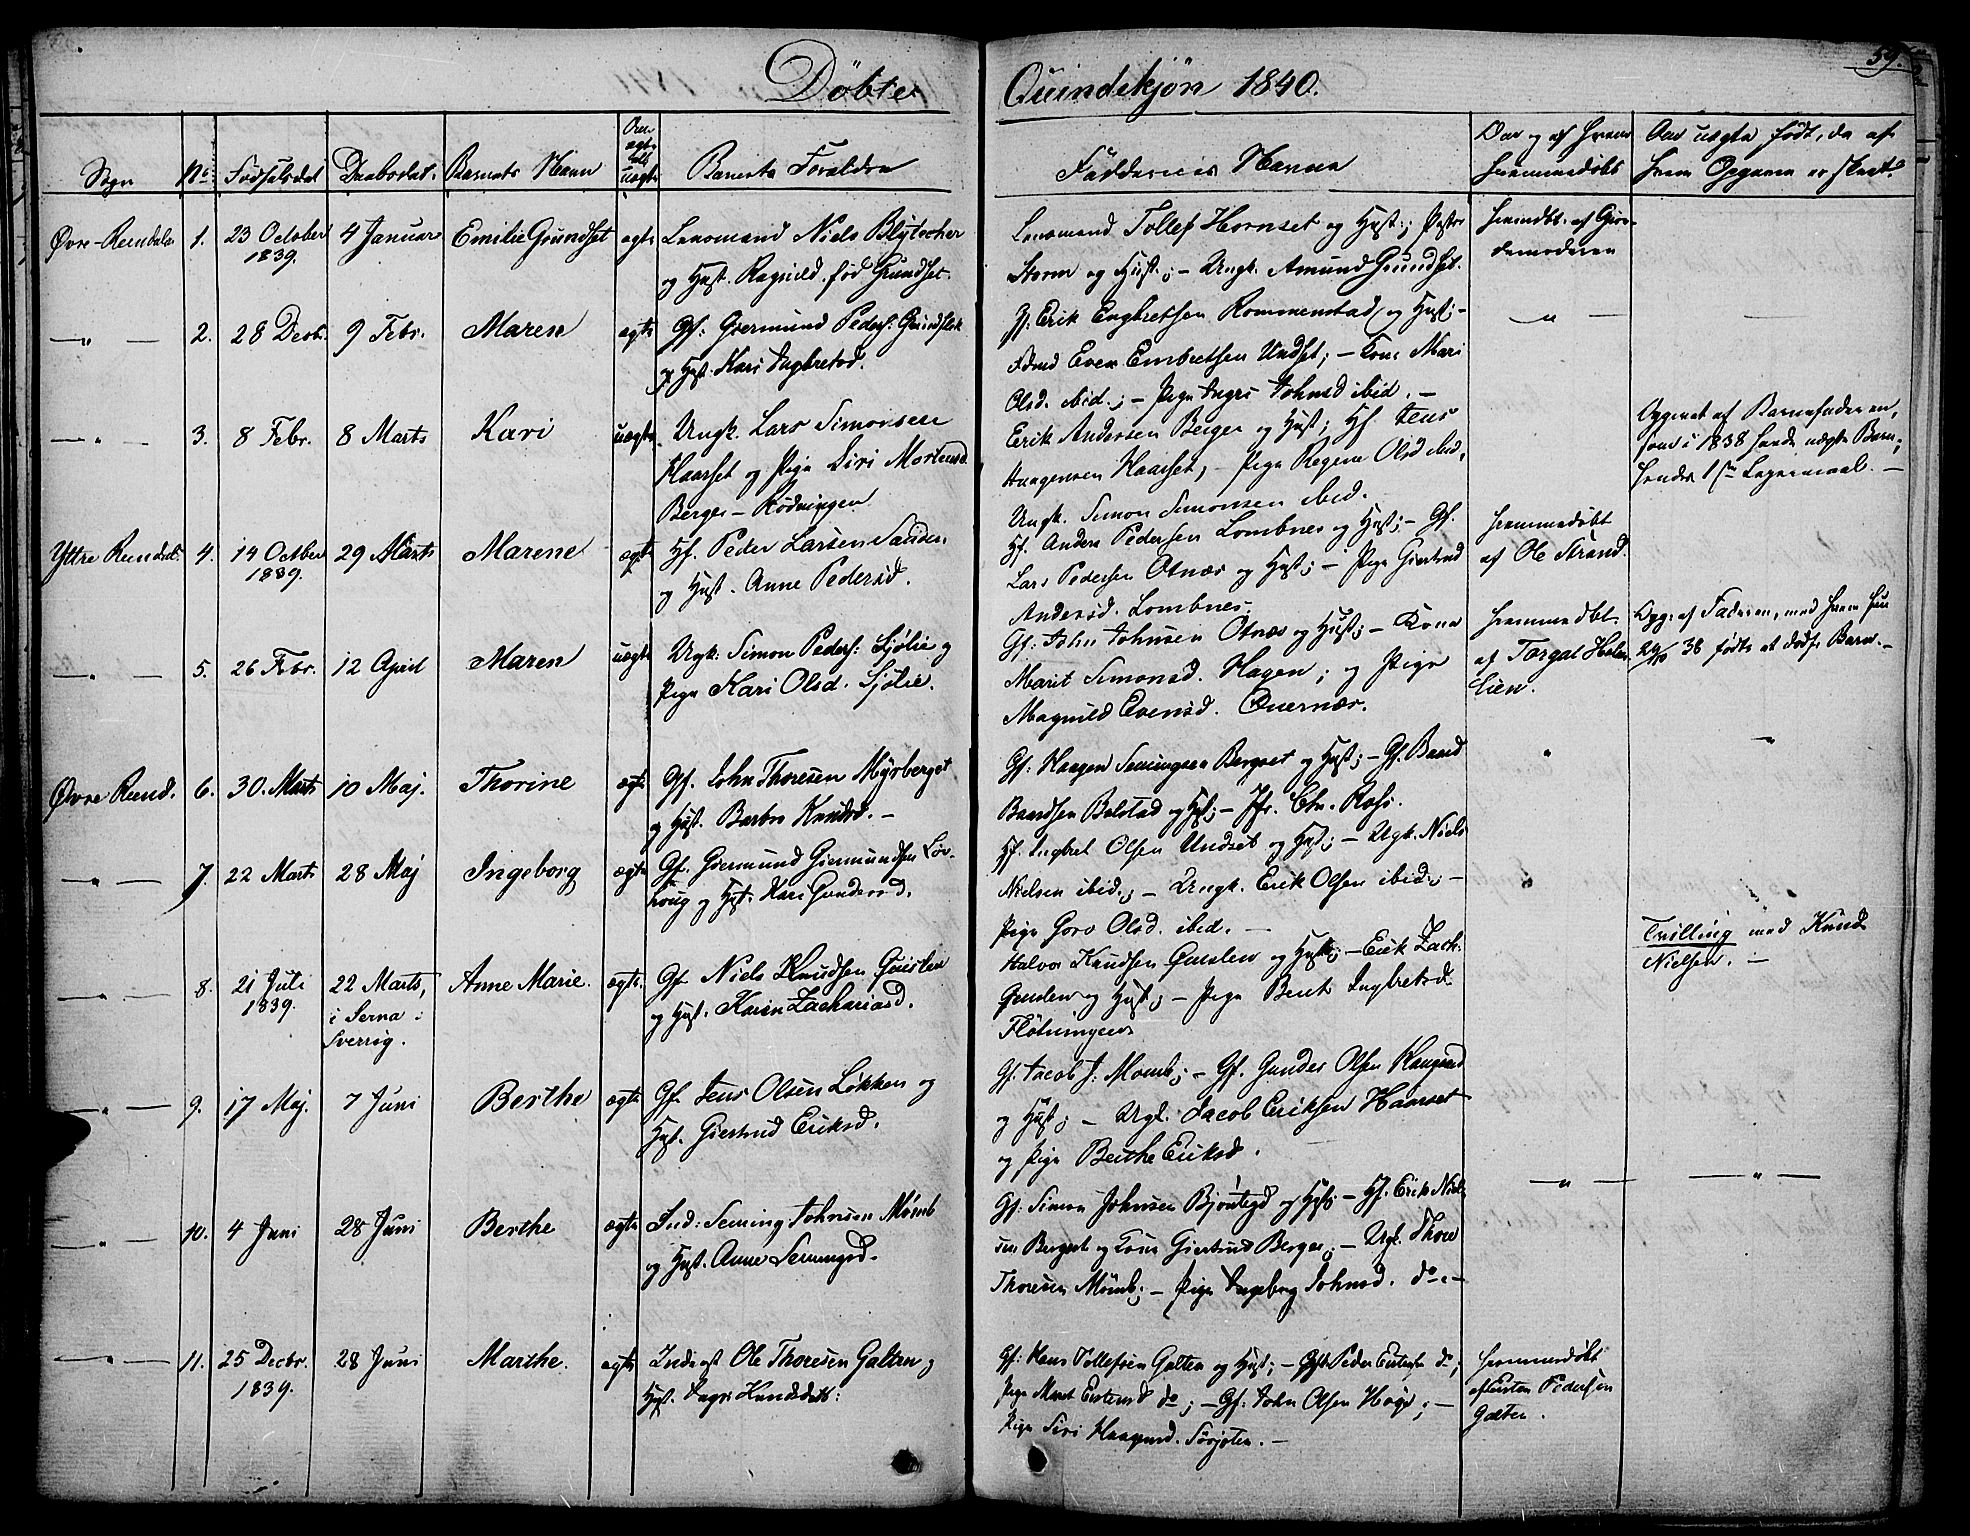 Döbte Qvindekjøn 1840.
59.
Sogn No Fødselsdat. Daabsdat. Barnets Navn Om ægte ell. uægte Barnets Forældre Faddernes Navne Om og af hvem hjemmedøbt Om uægte født, da af hvem Opgaven er skeet.
Øvre-Rendal 1. 23 October 1839. 4 Januar Emilie Grundset ægte Lensmand Niels Blÿtecher
og Hust. Ragnild, fød Grundset.
Lensmand Tollef Hornset og Hust.; Pastor
Storm og Hust.; - Ungk. Amund Grundset.
hjemdbt. af Giordemoderen
—„— 2. 28 Decbr. 9 Febr. Maren ægte Gf: Giermund Peders:
og Hust. Kari Ingbretsd.
Gf. Erik Engbretsen Rommenstad og Hust; -
Even Embretsen Undset; - Kone Mari
Olsd. ibid.; - Pige Ingri Johnsd ibid. -
—„—
—„— 3. 8 Febr. 8 Marts Kari uægte Ungk. Lars Simonsen
Haarset og Pige Siri Mortensd.
Berger - Rödningen.
Erik Andersen Berger og Hust; Hf. Jens
Haagensen Haarset; - Pige Regine Olsd ibid,
Ungk. Simon Simonsen ibid.
Opgivet af Barnefaderen,
som i 1838 havde uægte Barn;
hendes 1ste Leiermaal. -
Yttre Rendal. 4. 14 October 1839. 29 Marts Marene ægte Hf. Peder Larsen Sanden
og Hust. Anne Pedersd.
Hf. Anders Pedersen Lombnes og Hust; - Gf.
Lars Pedersen Otnæs og Hust; - Pige Giertrud
Andersd. Lombnes.
hjemmedøbt
af Ole Strand.
—„— 5. 26 Febr. 12 April Maren uægte Ungk: Simon Peders: Sjølie og
Pige Kari Olsd. Sjölie.
Gf: John Johnsen Otnæs og Hust; - Kone
Marit Simonsd. Hagen; og Pige
Magnild Evensd. Qvernæs.
hjemmedbt.
af Torgal Holen
lien.
Opg. af Faderen, med hvem hun
29/10 38 födte et dødf. Barn. -
Øvre Rend. 6. 30. Marts 10 Maj. Thorine ægte Gf. John Thoresen Mÿrberget
og Hust. Barbro Knudsd. -
Gf: Haagen Semingsen Bergset og Hust; - Gf. Baard
Baardsen Bolstad og Hust; - Jfr. Chr. Rafs.
—„— 7. 22 Marts 28 Maj Ingeborg ægte Gf. Giermund Giermundsen Löv-
houg og Hust. Kari Gundersd.
Hf. Ingbret Olsen Undset og Hust; - Ugk. Niels
Nielsen ibid.; - Ungk. Erik Olsen ibid.; -
Pige Goro Olsd. ibid. -
—„— 8. 21 Juli 1839. 22 Marts, i Serna i Sverrig. Anne Marie. ægte. Gf. Niels Knudsen
og Hust. Karen Zachariasd.
Halvor Knudsen og Hust; - Erik Zach.
og Hust; - Pige Berit Ingbretsd.
Flötningen
Tvilling med Knud
Nielsen. -
—„— 9. 17 Maj. 7 Juni Berthe ægte Gf. Jens Olsen Løkken og
Hust. Giertrud Eriksd.
Gf. Jacob J: Momb; - Gf. Gunder Olsen Haagaard
og Hust; - Ugk. Jacob Eriksen Haarset
og Pige Berthe Eriksd.
—„— 10. 4 Juni 28 Juni Berthe ægte Ind: Seming Johnsen Mömb
og Hust. Anne Semingsd.
Gf: Simon Johnsen Bjöntegd og Hust; - Hf. Erik Niel-
sen Bergset og Kone Giertrud Berger; - Ugk. Thore
Thoresen Mömb; - Pige Ingeborg Johnsd. do. -
—„— —„—
—„— 11. 25 Decbr. 1839. 28 Juni Marthe. ægte Inderst Ole Thoresen Galten og
Hust. Ingri
Gf: Hans Tollefsen Galten og Hust; - Peder do;
Pige Marit do; - Gf: John Olsen Hoge; -
Pige Siri Haagensd. -
hjemmedøbt
af Esten Pedersen
Galten.